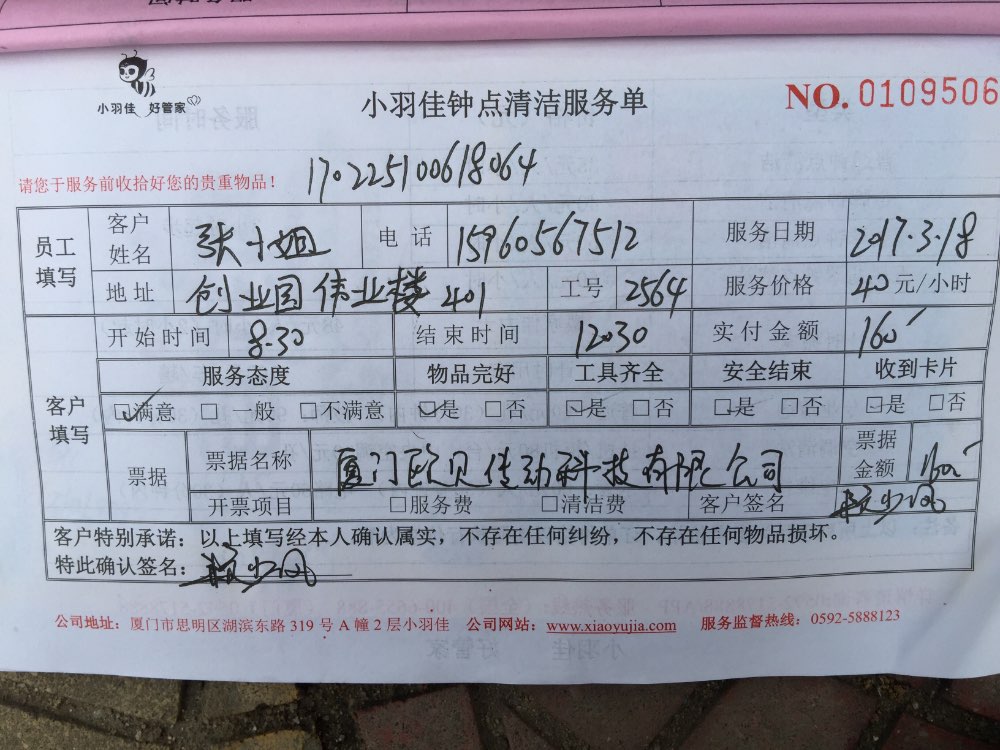 小羽佳 好管家
小羽佳钟点清洁服务单
NO. 0109506
请您于服务前收拾好您的贵重物品！
170225100618064
员工填写 客户姓名 张小姐 电话 15960567512 服务日期 2017.3.18
地址 创业园伟业楼401 工号 2564 服务价格 40元/小时
客户填写 开始时间 8:30 结束时间 12:30 实付金额 160
服务态度 物品完好 工具齐全 安全结束 收到卡片
☑满意 □一般 □不满意 ☑是 □否 ☑是 □否 ☑是 □否 ☑是 □否
票据 票据名称 厦门欧贝传动科技有限公司 票据金额 160
开票项目 □服务费 □清洁费 客户签名
客户特别承诺：以上填写经本人确认属实，不存在任何纠纷，不存在任何物品损坏。
特此确认签名：
公司地址：厦门市思明区湖滨东路 319 号 A 幢 2 层小羽佳 公司网站：www.xiaoyujia.com 服务监督热线：0592-5888123